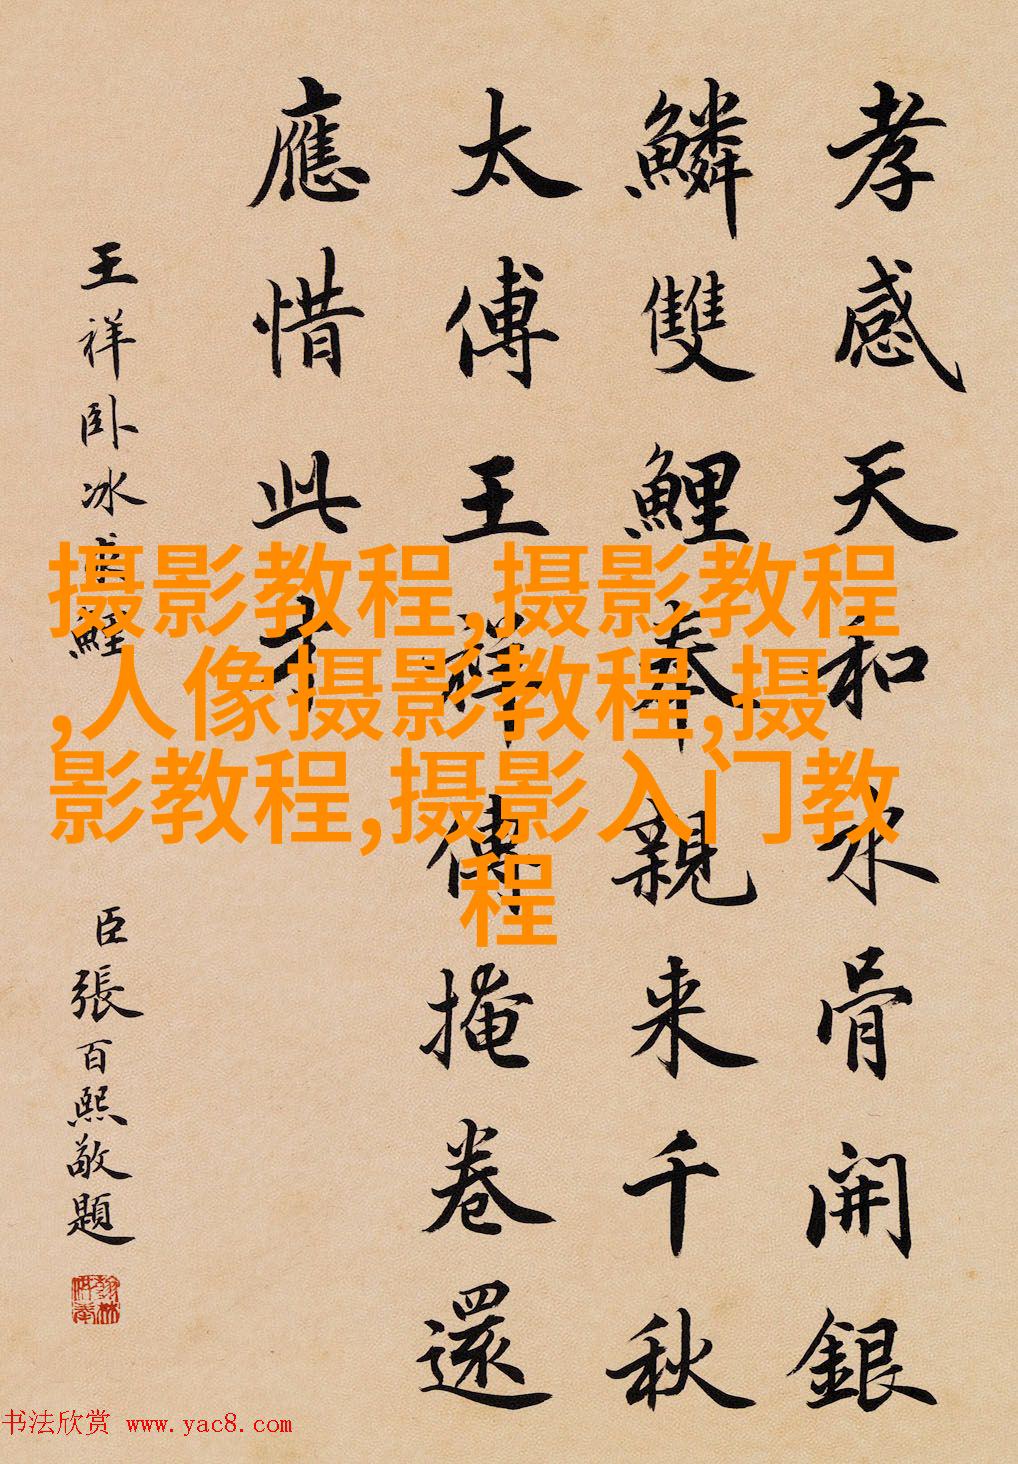 孝感天和氷骨開銀
鱗雙鯉奉親来千秋
太傅王祥傳掩卷還
應惜此才
王祥卧冰求鯉
臣張百熙敬題
摄影教程,摄影教程
,人像摄影教程,摄
影教程,摄影入门教
程
书法欣赏 www.yac8.com